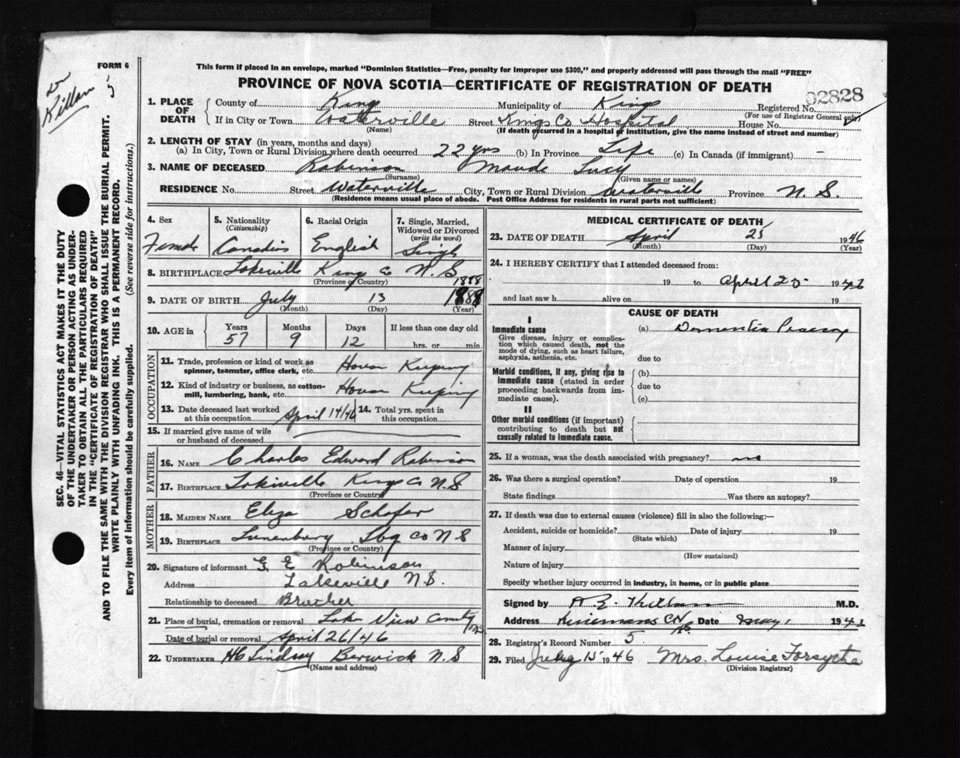 FORM 6
Killam
5
This form if placed in an envelope, marked "Dominion Statistics—Free, penalty for improper use $300," and properly addressed will pass through the mail "FREE"
PROVINCE OF NOVA SCOTIA—CERTIFICATE OF REGISTRATION OF DEATH
1. PLACE OF DEATH County of Kings Municipality of Kings Registered No. 82828
(For use of Registrar General only)
If in City or Town Waterville Street Kings Co Hospital House No.
(Name) (If death occurred in a hospital or institution, give the name instead of street and number)
2. LENGTH OF STAY (in years, months and days)
(a) In City, Town or Rural Division where death occurred 22 yrs (b) In Province Life (c) In Canada (if immigrant) —
3. NAME OF DECEASED Robinson Maude Lucy
(Surname) (Given name or names)
RESIDENCE No. Street Waterville City, Town or Rural Division Waterville Province N.S.
(Residence means usual place of abode. Post Office Address for residents in rural parts not sufficient)
4. Sex Female
5. Nationality (Citizenship) Canadian
6. Racial Origin English
7. Single, Married, Widowed or Divorced (write the word) Single
8. BIRTHPLACE Lakeville Kings Co N.S
(Province or Country)
1888
9. DATE OF BIRTH July 13 1888
(Month) (Day) (Year)
10. AGE in Years 57 Months 9 Days 12 If less than one day old hrs. or min.
OCCUPATION
11. Trade, profession or kind of work as spinner, teamster, office clerk, etc. House Keeping
12. Kind of industry or business, as cotton-mill, lumbering, bank, etc. House Keeping
13. Date deceased last worked at this occupation April 14/46 14. Total yrs. spent in this occupation
15. If married give name of wife or husband of deceased
FATHER
16. NAME Charles Edward Robinson
17. BIRTHPLACE Lakeville Kings Co N.S
(Province or Country)
MOTHER
18. MAIDEN NAME Eliza Schofer
19. BIRTHPLACE Lunenburg Lbg Co N S
(Province or Country)
20. Signature of informant G. E Robinson
Address Lakeville N.S.
Relationship to deceased Brother
21. Place of burial, cremation or removal Lake View Cemetery
Date of burial or removal April 26/46
22. UNDERTAKER HC Lindsay Berwick N.S
(Name and address)
MEDICAL CERTIFICATE OF DEATH
23. DATE OF DEATH April 25 1946
(Month) (Day) (Year)
24. I HEREBY CERTIFY that I attended deceased from:
19 to April 25 1946
and last saw h alive on 19
CAUSE OF DEATH
I
Immediate cause (a) Dementia Praecox
Give disease, injury or complication which caused death, not the mode of dying, such as heart failure, asphyxia, asthenia, etc.
due to
Morbid conditions, if any, giving rise to immediate cause (stated in order proceeding backwards from immediate cause).
(b)
due to
(c)
II
Other morbid conditions (if important) contributing to death but not causally related to immediate cause.
25. If a woman, was the death associated with pregnancy? no
26. Was there a surgical operation? Date of operation 19
State findings Was there an autopsy?
27. If death was due to external causes (violence) fill in also the following:—
Accident, suicide or homicide? Date of injury 19
(State which)
Manner of injury
(How sustained)
Nature of injury
Specify whether injury occurred in industry, in home, or in public place
Signed by Killam M.D.
Address Date May 1 1946
28. Registrar's Record Number 5
29. Filed July 15 1946 Mrs. Louise Forsythe
(Division Registrar)
SEC. 46—VITAL STATISTICS ACT MAKES IT THE DUTY
OF THE UNDERTAKER OR PERSON ACTING AS UNDER-
TAKER TO OBTAIN ALL THE PARTICULARS REQUIRED
IN THE "CERTIFICATE OF REGISTRATION OF DEATH"
AND TO FILE THE SAME WITH THE DIVISION REGISTRAR WHO SHALL ISSUE THE BURIAL PERMIT.
WRITE PLAINLY WITH UNFADING INK. THIS IS A PERMANENT RECORD.
Every item of information should be carefully supplied. (See reverse side for instructions.)